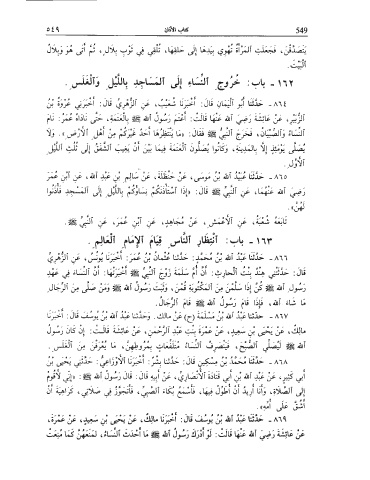 549 كتاب الأذان ٥٤٩
يَتَصَدَّقْنَ، فَجَعَلَتِ المَرْأَةُ تُهْوِي بِيَدِهَا إِلَى حَلْقِهَا، تُلْقِي فِي ثَوْبِ بِلَالٍ، ثُمَّ أَتَى هُوَ وَبِلَالٌ
الْبَيْتَ.
١٦٢ - باب: خُرُوجِ النِّسَاءِ إِلَى الْمَسَاجِدِ بِاللَّيْلِ وَالْغَلَسِ.
٨٦٤ - حَدَّثَنَا أَبُو الْيَمَانِ قَالَ: أَخْبَرَنَا شُعَيْبٌ، عَنِ الزُّهْرِيِّ قَالَ: أَخْبَرَنِي عُرْوَةُ بْنُ
الزُّبَيْرِ، عَنْ عَائِشَةَ رَضِيَ الله عَنْهَا قَالَتْ: أَعْتَمَ رَسُولُ الله ﷺ بِالْعَتَمَةِ، حَتَّى نَادَاهُ عُمَرُ: نَامَ
النِّسَاءُ وَالصِّبْيَانُ، فَخَرَجَ النَّبِيُّ ﷺ فَقَالَ: «مَا يَنْتَظِرُهَا أَحَدٌ غَيْرُكُمْ مِنْ أَهْلِ الْأَرْضِ». وَلَا
يُصَلَّى يَوْمَئِذٍ إِلَّا بِالْمَدِينَةِ، وَكَانُوا يُصَلُّونَ الْعَتَمَةَ فِيمَا بَيْنَ أَنْ يَغِيبَ الشَّفَقُ إِلَى ثُلُثِ اللَّيْلِ
الْأَوَّلِ.
٨٦٥ - حَدَّثَنَا عُبَيْدُ الله بْنُ مُوسَى، عَنْ حَنْظَلَةَ، عَنْ سَالِمِ بْنِ عَبْدِ الله، عَنِ ابْنِ عُمَرَ
رَضِيَ الله عَنْهُمَا، عَنِ النَّبِيِّ ﷺ قَالَ: «إِذَا اسْتَأْذَنَكُمْ نِسَاؤُكُمْ بِاللَّيْلِ إِلَى الْمَسْجِدِ فَأْذَنُوا
لَهُنَّ».
تَابَعَهُ شُعْبَةُ، عَنِ الْأَعْمَشِ، عَنْ مُجَاهِدٍ، عَنِ ابْنِ عُمَرَ، عَنِ النَّبِيِّ ﷺ.
١٦٣ - باب: انْتِظَارِ النَّاسِ قِيَامَ الْإِمَامِ الْعَالِمِ.
٨٦٦ - حَدَّثَنَا عَبْدُ الله بْنُ مُحَمَّدٍ: حَدَّثَنَا عُثْمَانُ بْنُ عُمَرَ: أَخْبَرَنَا يُونُسُ، عَنِ الزُّهْرِيِّ
قَالَ: حَدَّثَتْنِي هِنْدُ بِنْتُ الْحَارِثِ: أَنَّ أُمَّ سَلَمَةَ زَوْجَ النَّبِيِّ ﷺ أَخْبَرَتْهَا: أَنَّ النِّسَاءَ فِي عَهْدِ
رَسُولِ الله ﷺ كُنَّ إِذَا سَلَّمْنَ مِنَ الْمَكْتُوبَةِ قُمْنَ، وَثَبَتَ رَسُولُ الله ﷺ وَمَنْ صَلَّى مِنَ الرِّجَالِ
مَا شَاءَ الله، فَإِذَا قَامَ رَسُولُ الله ﷺ قَامَ الرِّجَالُ.
٨٦٧ - حَدَّثَنَا عَبْدُ الله بْنُ مَسْلَمَةَ (ح) عَنْ مَالِكٍ. وحَدَّثَنَا عَبْدُ الله بْنُ يُوسُفَ قَالَ: أَخْبَرَنَا
مَالِكٌ، عَنْ يَحْيَى بْنِ سَعِيدٍ، عَنْ عَمْرَةَ بِنْتِ عَبْدِ الرَّحْمٰنِ، عَنْ عَائِشَةَ قَالَتْ: إِنْ كَانَ رَسُولُ
الله ﷺ لَيُصَلِّي الصُّبْحَ، فَيَنْصَرِفُ النِّسَاءُ مُتَلَفِّعَاتٍ بِمُرُوطِهِنَّ، مَا يُعْرَفْنَ مِنَ الْغَلَسِ.
٨٦٨ - حَدَّثَنَا مُحَمَّدُ بْنُ مِسْكِينٍ قَالَ: حَدَّثَنَا بِشْرٌ: أَخْبَرَنَا الْأَوْزَاعِيُّ: حَدَّثَنِي يَحْيَى بْنُ
أَبِي كَثِيرٍ، عَنْ عَبْدِ الله بْنِ أَبِي قَتَادَةَ الْأَنْصَارِيِّ، عَنْ أَبِيهِ قَالَ: قَالَ رَسُولُ الله ﷺ: «إِنِّي لَأَقُومُ
إِلَى الصَّلَاةِ، وَأَنَا أُرِيدُ أَنْ أُطَوِّلَ فِيهَا، فَأَسْمَعُ بُكَاءَ الصَّبِيِّ، فَأَتَجَوَّزُ فِي صَلَاتِي، كَرَاهِيَةَ أَنْ
أَشُقَّ عَلَى أُمِّهِ».
٨٦٩ - حَدَّثَنَا عَبْدُ الله بْنُ يُوسُفَ قَالَ: أَخْبَرَنَا مَالِكٌ، عَنْ يَحْيَى بْنِ سَعِيدٍ، عَنْ عَمْرَةَ،
عَنْ عَائِشَةَ رَضِيَ الله عَنْهَا قَالَتْ: لَوْ أَدْرَكَ رَسُولُ الله ﷺ مَا أَحْدَثَ النِّسَاءُ، لَمَنَعَهُنَّ كَمَا مُنِعَتْ